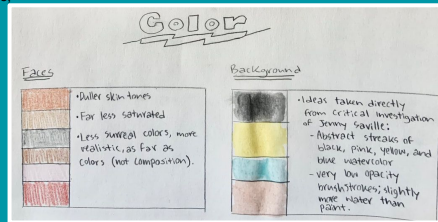 Color
Faces
• Duller skin tones
• Far less saturated
• Less surreal colors, more
realistic, as far as
colors (not composition).
Background
• Ideas taken directly
from critical investigation
of Jenny Saville:
- Abstract streaks of
black, pink, yellow, and
blue watercolor
- very low opacity
brushstrokes; slightly
more water than
paint.